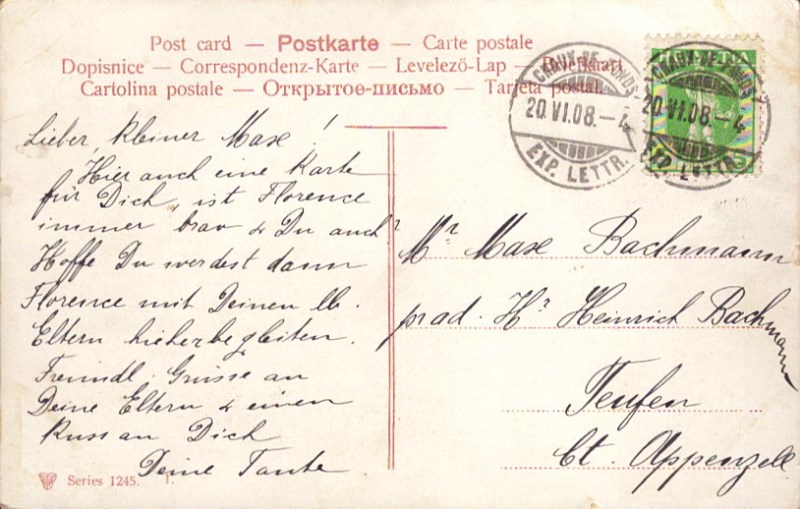 Post card — Postkarte — Carte postale
Dopisnice — Correspondenz-Karte — Levelezö-Lap — Briefkaart
Cartolina postale — Открытое-письмо — Tarjeta postal
CHAUX-DE-FONDS
20.VI.08.–4
EXP. LETTR.
CHAUX-DE-FONDS
20.VI.08.–4
EXP. LETTR.
Lieber, kleiner Max!
Hier auch eine Karte
für Dich, ist Florence
immer brav & Du auch?
Hoffe Du werdest dann
Florence mit Deinen lb.
Eltern hieherbegleiten.
Freundl. Grüsse an
Deine Eltern & einen
Kuss an Dich
Deine Tante
Mr Max Bachmann
Hr Heinrich Bachmann
Teufen
Ct. Appenzell
Series 1245. I.